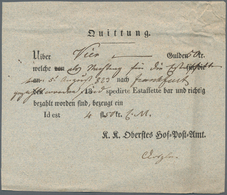 Quittung.
Ueber Vier Gulden Kr.
welche als Nachtrag für die Estaffette
am 5t August 823 nach Frankfurt
spedirte Estaffette bar und richtig
bezahlt worden sind, bezeugt ein
Id est 4 f Kr. C.M.
K. K. Oberstes Hof-Post-Amt.